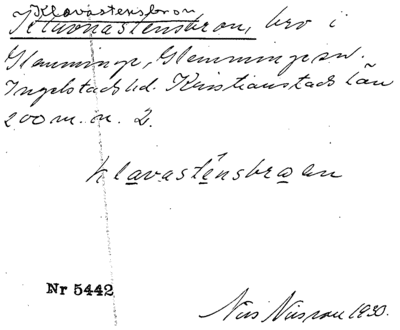 Klavastensbron
Klavastensbron, bro i
Glemminge, Glemminge sn.
Ingelstads hd. Kristianstads län
200 m. n. 2.
klavastensbroen
Nr 5442
Nils Nilsson 1930.